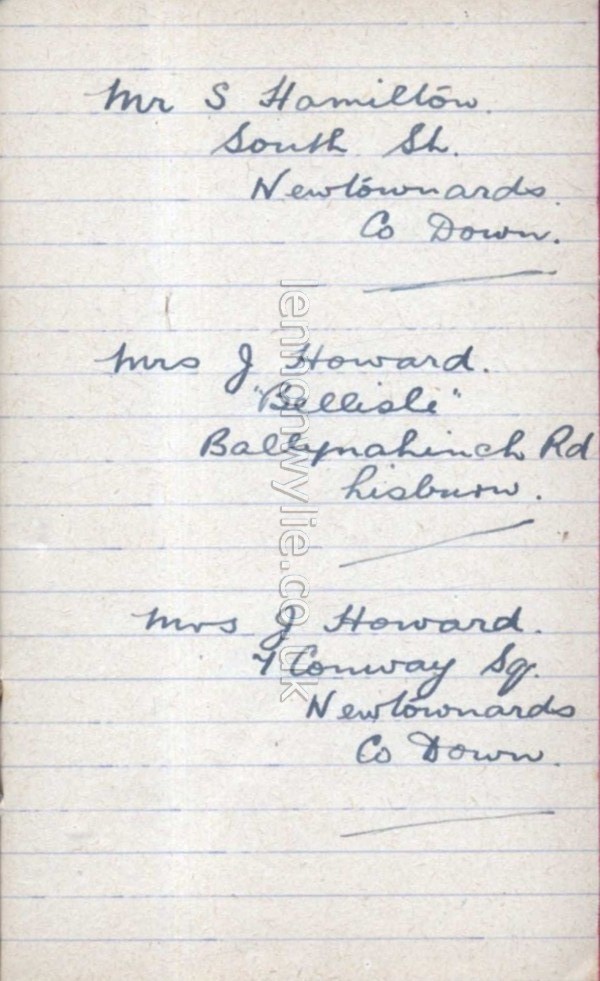 Mr S Hamilton.
South St.
Newtownards.
Co Down.
Mrs J Howard.
"Bellisle"
Ballynahinch Rd
Lisburn.
Mrs J Howard.
7 Conway Sq.
Newtownards
Co Down.
lennonwylie.co.uk